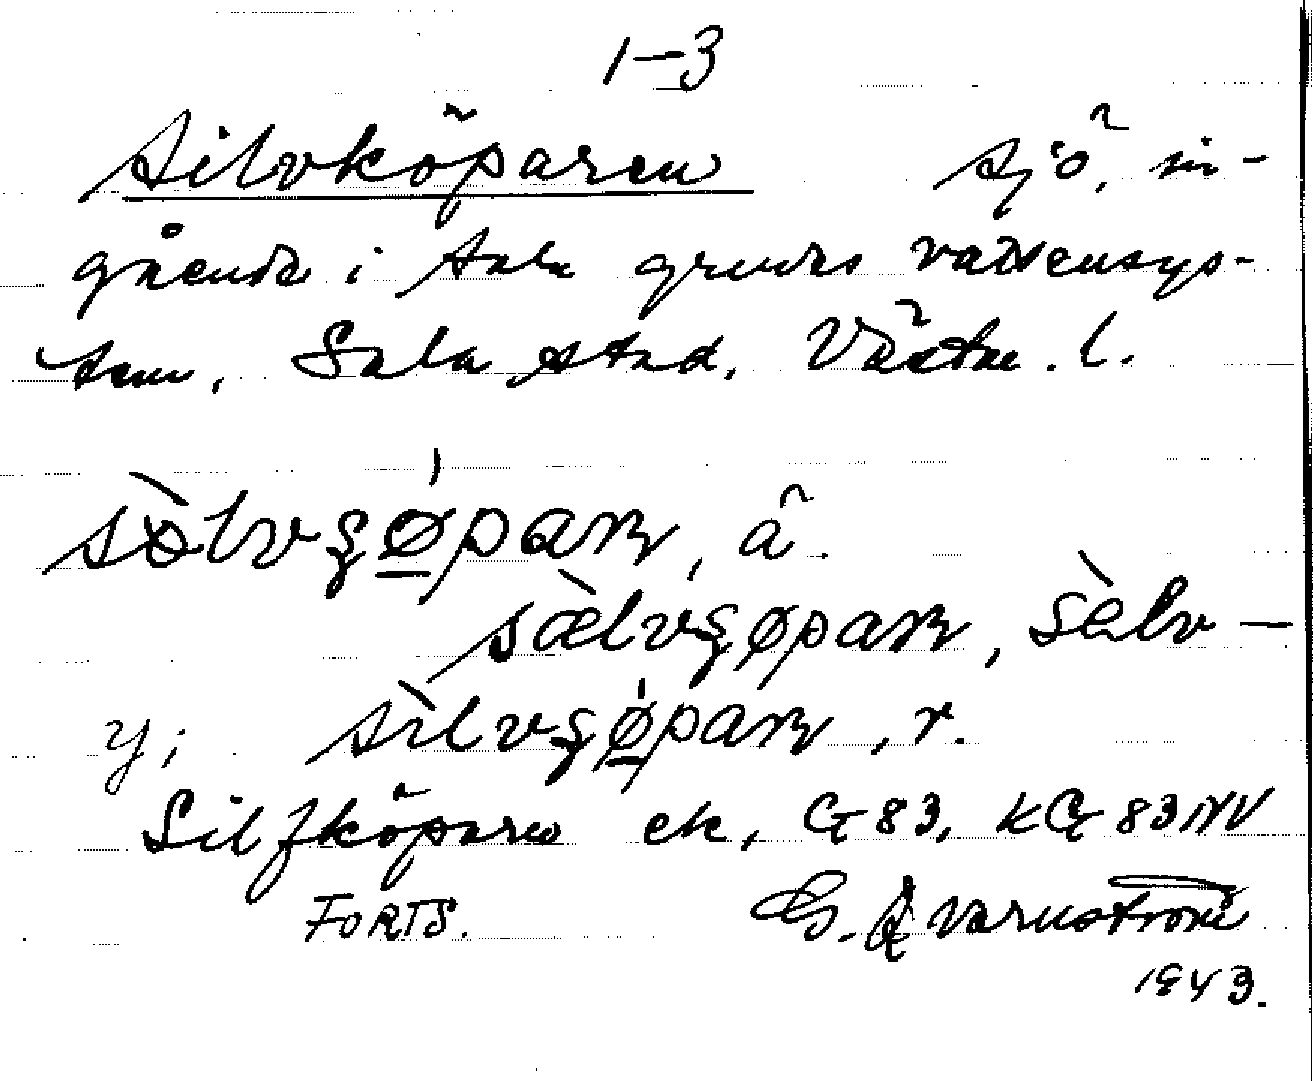 1-3
Silvköparen sjö, in-
gående i Sala gruvas vattensys-
tem, Sala stad, Västm. l.
sə̀lvʒø̍parn, ä.
sælvʒøparn, sèlv—
y; sìlvʒø̍parn, r.
Silfköparen ek, G 83, KG 83 NV
FORTS. G. Qvarnström
1943.